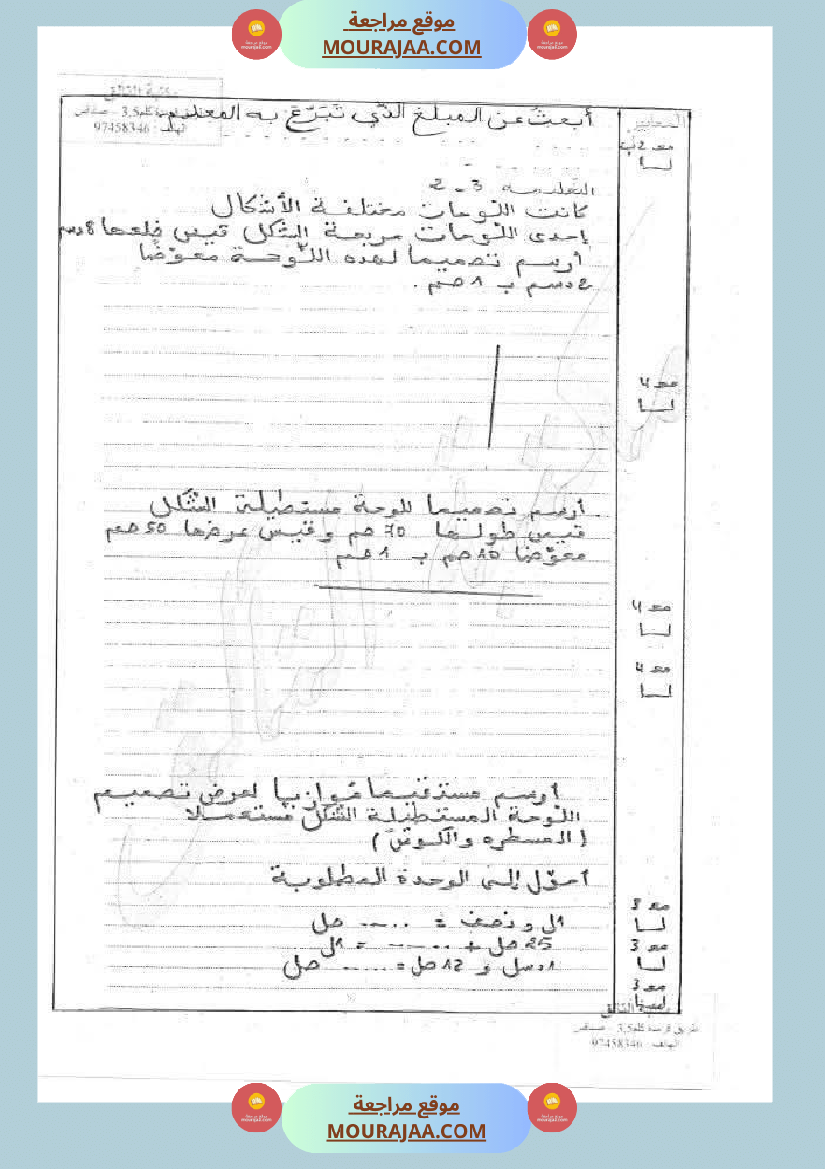 موقع مراجعة
MOURAJAA.COM
أبحث عن المبلغ الذي تبرّع به المعلم
الهاتف : 97458346
مع 2ب
التعليمة 3 - 2
كانت اللوحات مختلفة الأشكال
إحدى اللوحات مربعة الشكل تقيس ضلعها 8دسم
أرسم تصميما لهذه اللوحة معوّضا
2 دسم بـ 1 صم .
مع 4
أرسم تصميما للوحة مستطيلة الشكل
تقيس طولها 70 صم و تقيس عرضها 50 صم
معوّضا 10 صم بـ 1 صم
مع 4
مع 4
أرسم مستقيما موازيا لعرض تصميم
اللوحة المستطيلة الشكل مستعملا
( المسطره والكوس )
أحوّل إلى الوحدة المطلوبة
1ل و نصف = ..... صل
25 صل + ..... = 1ل
1دسل و 12 صل = ..... صل
مع 3
مع 3
مع 3
الهاتف : 97458346
موقع مراجعة
MOURAJAA.COM